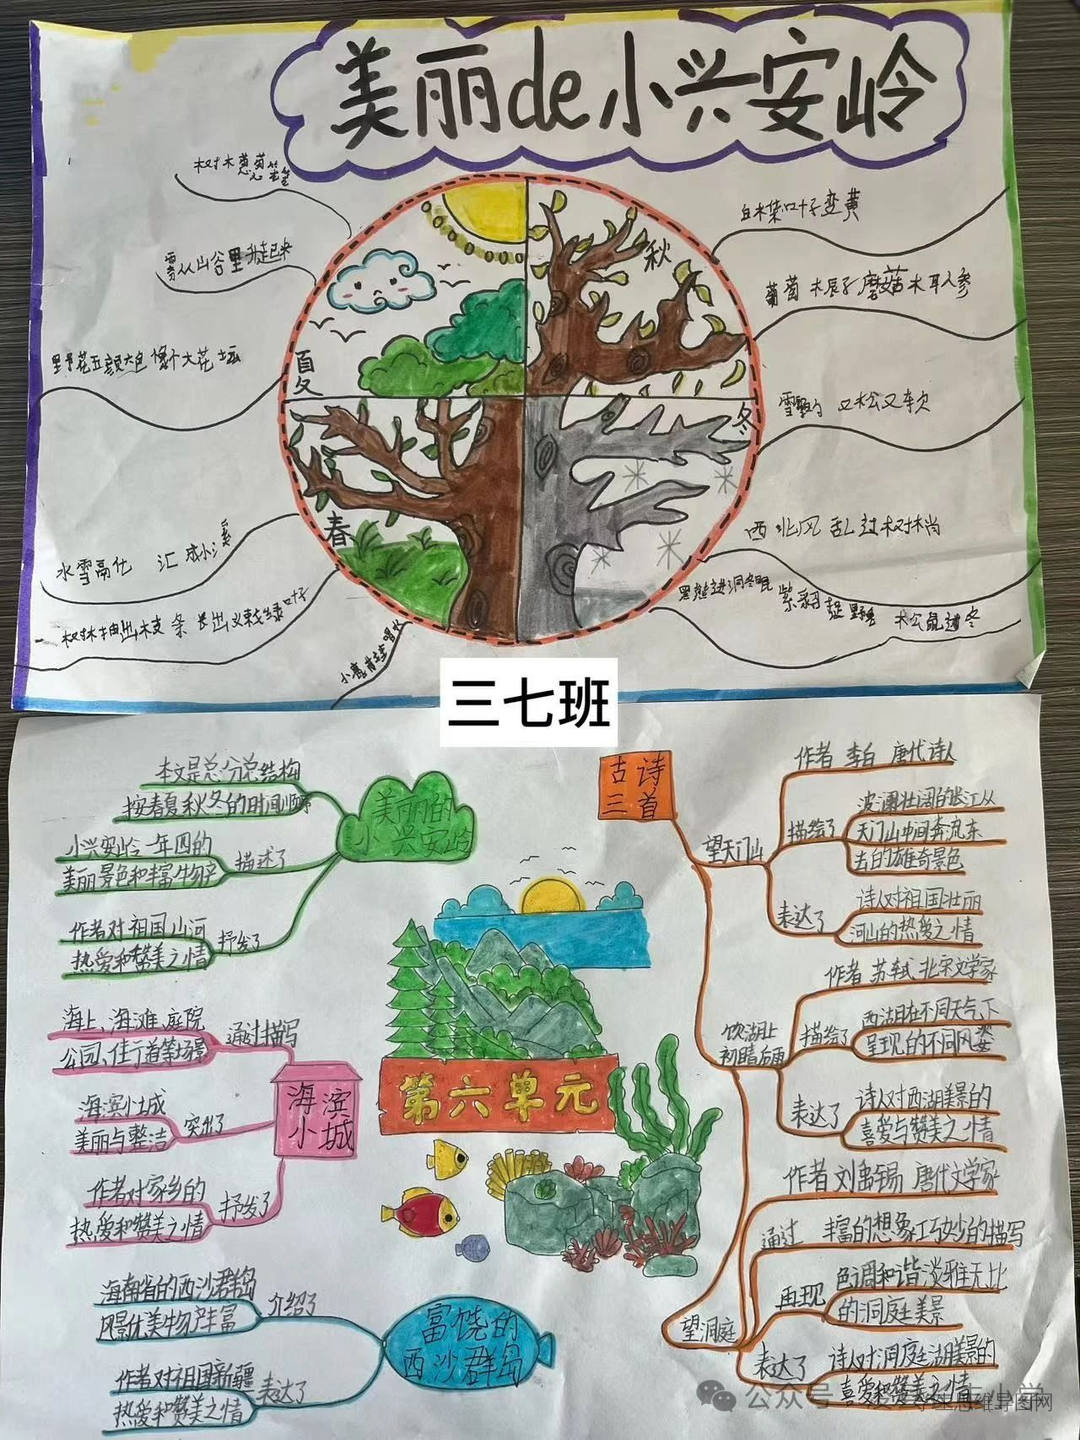 美丽de小兴安岭
树木葱葱茏茏
雾从山谷里升起来
野花五颜六色 像个大花坛
夏
春
秋
冬
白桦叶子变黄
葡萄 榛子 蘑菇 木耳人参
又松又软
西北风 乱过树梢
黑熊进洞冬眠
紫貂捉野兔
松鼠过冬
冰雪融化 汇成小溪
树木抽出枝条 长出嫩绿叶子
三七班
美丽的
小兴安岭
本文是总分总结构
按春夏秋冬的时间顺序
描述了
小兴安岭一年四的
美丽景色和丰富物产
抒发了
作者对祖国山河
热爱和赞美之情
海滨
小城
通过描写
海上、海滩、庭院
公园、住行道等场景
突出了
海滨小城
美丽与整洁
抒发了
作者对家乡的
热爱和赞美之情
富饶的
西沙群岛
介绍了
海南省的西沙群岛
风景优美物产丰富
表达了
作者对祖国新疆
热爱和赞美之情
第六单元
古诗
三首
望天门山
作者 李白 唐代诗人
描绘了
波澜壮阔的长江从
天门山中间奔流东
去的雄奇景色
表达了
诗人对祖国壮丽
河山的热爱之情
饮湖上
初晴后雨
作者 苏轼 北宋文学家
描绘了
西湖在不同天气下
呈现的不同风姿
表达了
诗人对西湖美景的
喜爱与赞美之情
望洞庭
作者 刘禹锡 唐代文学家
通过 丰富的想象巧妙的描写
再现
色调和谐淡雅无比
的洞庭美景
表达了
诗人对洞庭湖美景的
喜爱和赞美之情
公众号
思维导图网